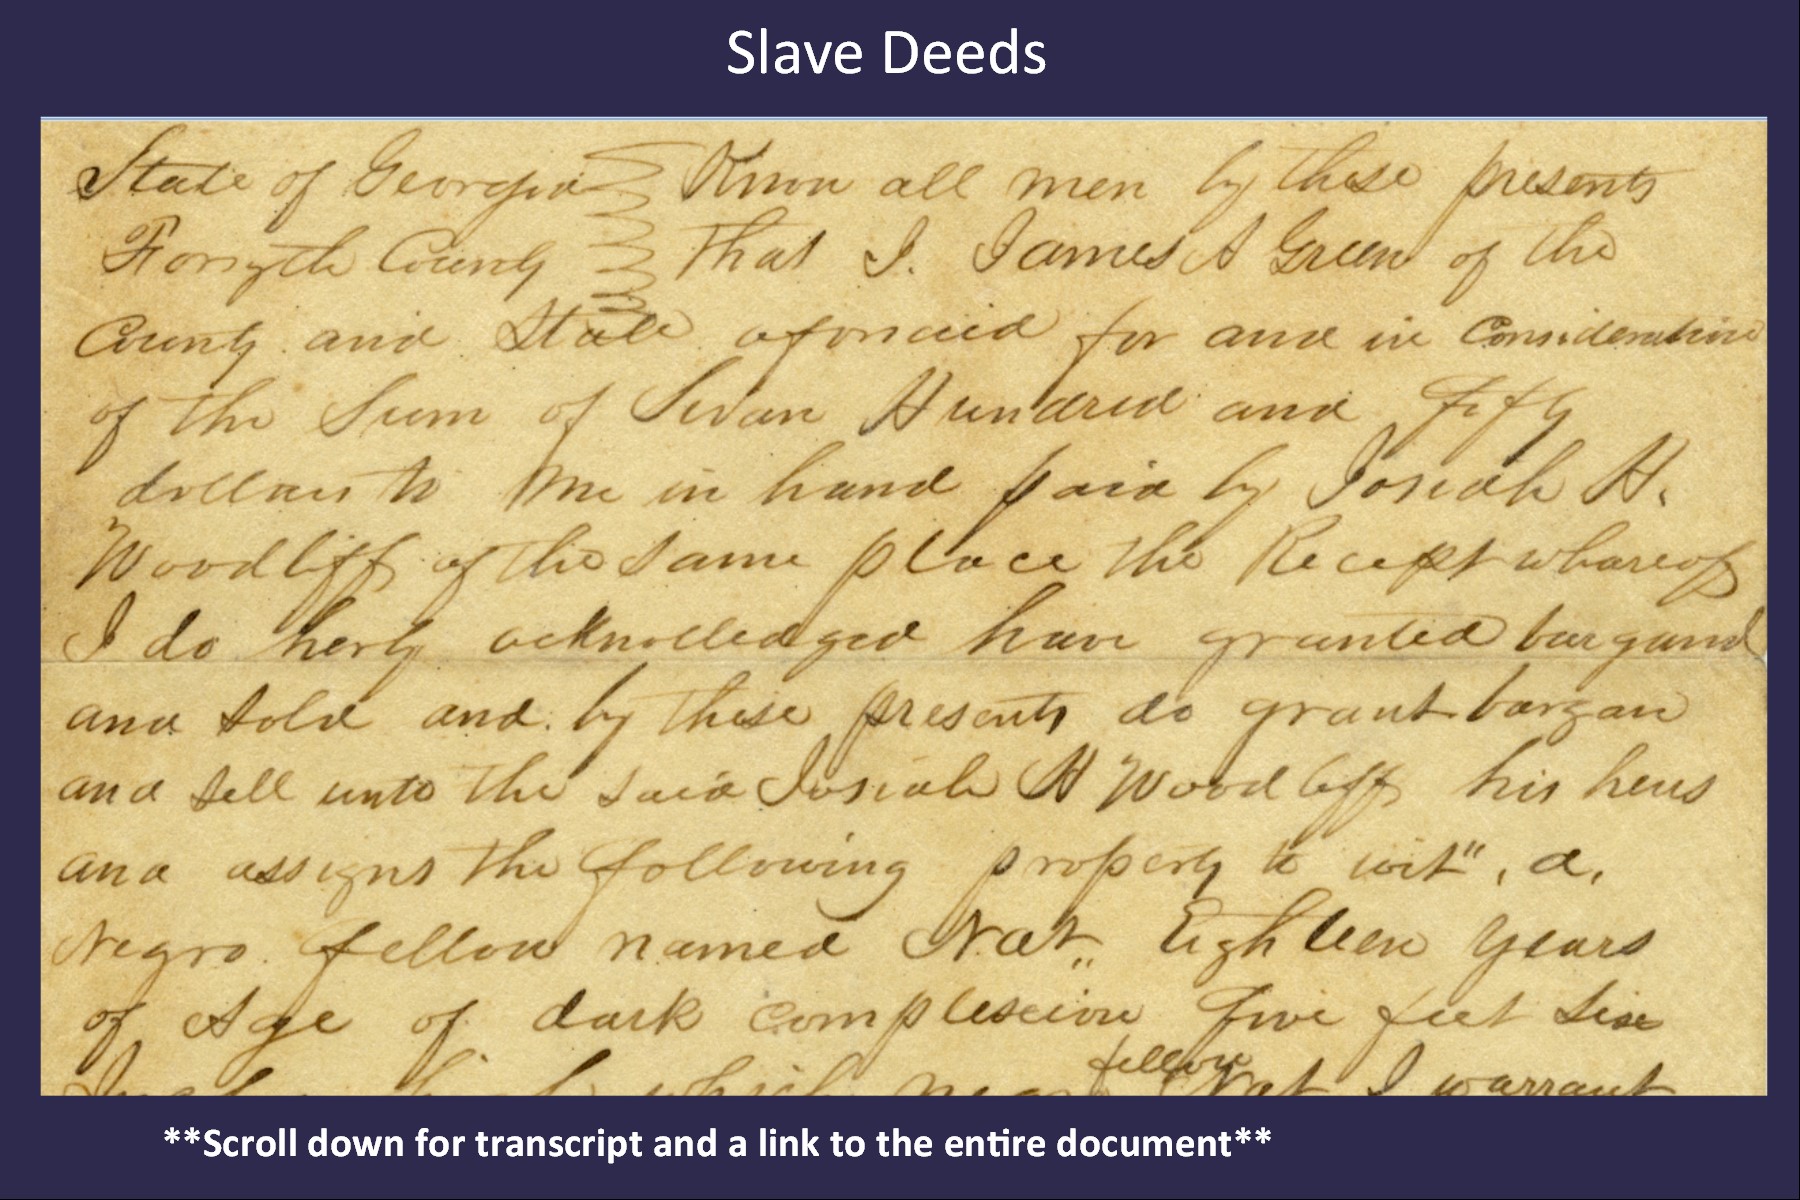 Slave Deeds
State of Georgia Know all men by these presents
Forsyth County that I. James A Green of the
County and State aforsaid for and in Consideration
of the Sum of Sevan Hundred and Fifty
dollars to me in hand paid by Josiah H.
Woodliff of the same place the Recept whareof
I do herby acknolledged have granted bargand
and sold and by these presents do grant bargan
and sell unto the said Josiah H Woodliff his heirs
and assigns the following property to wit", a,
Negro fellow named Nat,, Eighteen years
of Age of dark complexion Five feet Six
fellow
which Nat I warrant
**Scroll down for transcript and a link to the entire document**